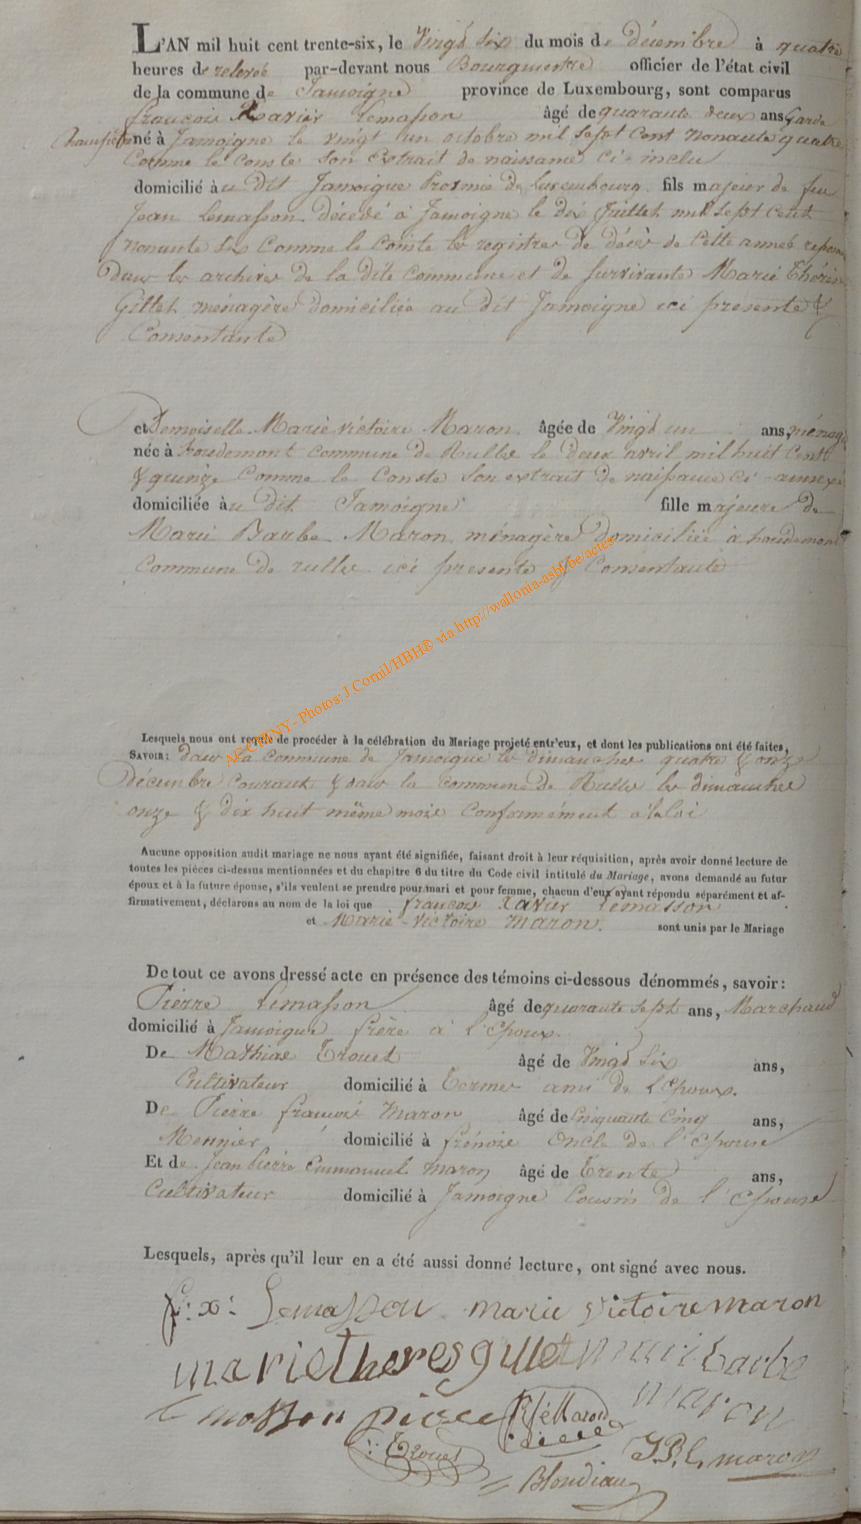 L'AN mil huit cent trente-six, le Vingt Six du mois de décembre à quatre
heures de relevée par-devant nous Bourgmestre officier de l'état civil
de la commune de Jamoigne province de Luxembourg, sont comparus
françois Xavier Lemasson âgé de quarante deux ans, Garde
Champêtre né à Jamoigne le vingt un octobre mil sept Cent nonante quatre
Comme le Conste Son Extrait de naissance ci-inclu
domicilié à u dit Jamoigne Province de Luxembourg fils majeur de feu
Jean Lemasson décédé à Jamoigne le dix Juillet mil Sept Cent
nonante Six Comme le Conste les registres de décès de Cette année
Dans les archives de la dite Commune et de Survivante Marie Thérèse
Gillet ménagère domiciliée au dit Jamoigne ici présente &
Consentante
et Demoiselle Marie victoire Maron âgée de Vingt un ans, ménagère
née à houdemont Commune de Rulles le deux avril mil huit Cent
& quinze Comme le Conste Son extrait de naissance ci-annexé
domiciliée à u dit Jamoigne fille majeure de
Marie Barbe Maron ménagère Domiciliée à houdemont
Commune de rulles ici présente & Consentante
AC CHINY - Photos: J.Comil/HBH© via http://wallonia-asbl.be/actes
Lesquels nous ont requis de procéder à la célébration du Mariage projeté entr'eux, et dont les publications ont été faites,
SAVOIR: dans la Commune de Jamoigne les dimanches quatre & onze
décembre Courant & dans la commune de Rulles les dimanches
onze & dix huit même mois Conformément à la loi
Aucune opposition audit mariage ne nous ayant été signifiée, faisant droit à leur réquisition, après avoir donné lecture de
toutes les pièces ci-dessus mentionnées et du chapitre 6 du titre du Code civil intitulé du Mariage, avons demandé au futur
époux et à la future épouse, s'ils veulent se prendre pour mari et pour femme, chacun d'eux ayant répondu séparément et af-
firmativement, déclarons au nom de la loi que françois Xavier Lemasson
et Marie-Victoire Maron. sont unis par le Mariage
De tout ce avons dressé acte en présence des témoins ci-dessous dénommés, savoir:
Pierre Lemasson âgé de quarante sept ans, Marchand
domicilié à Jamoigne frère à L'Epoux
De Mathias Trouet âgé de Vingt Six ans,
Cultivateur domicilié à Termes ami de L'Epoux.
De Pierre françois Maron âgé de Cinquante Cinq ans,
Meunier domicilié à frénoie Oncle de l'Epouse
Et de Jean Pierre Emmanuel Maron âgé de Trente ans,
Cultivateur domicilié à Jamoigne Cousin de l'Epouse
Lesquels, après qu'il leur en a été aussi donné lecture, ont signé avec nous.
f: x: Lemasson marie victoire maron
marie theres gillet mari barbe
maron
Lemasson piere
Trouet J.P.E. maron
Blondiau